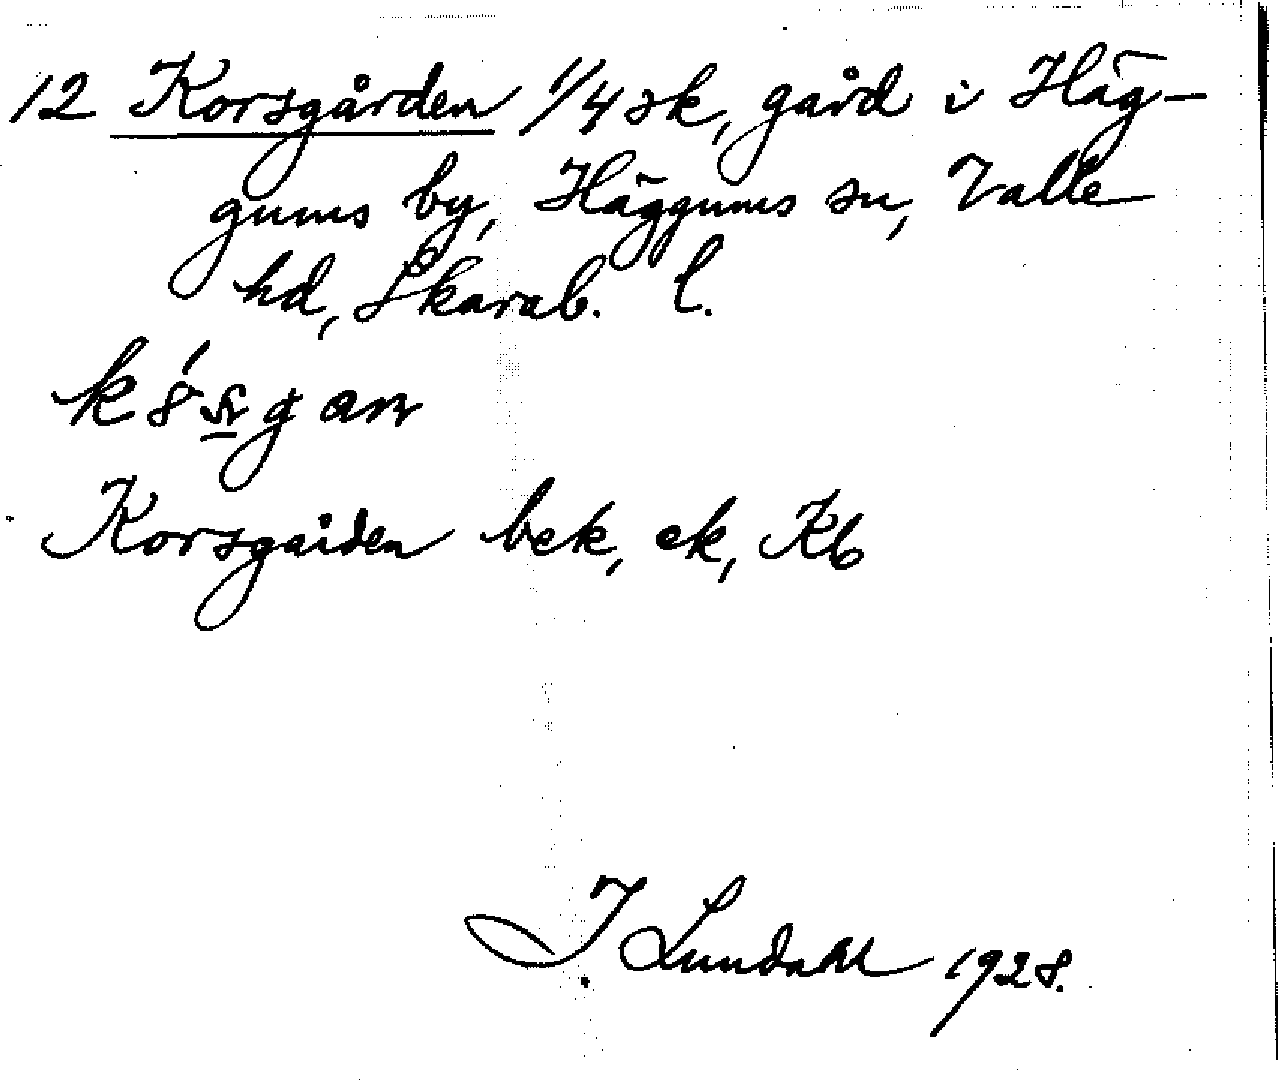 12 Korsgården 1/4 sk, gård i Häg-
gums by, Häggums sn, Valle
hd, Skarab. l.
Korsgården bek, ek, Kb
I Lundahl 1928.